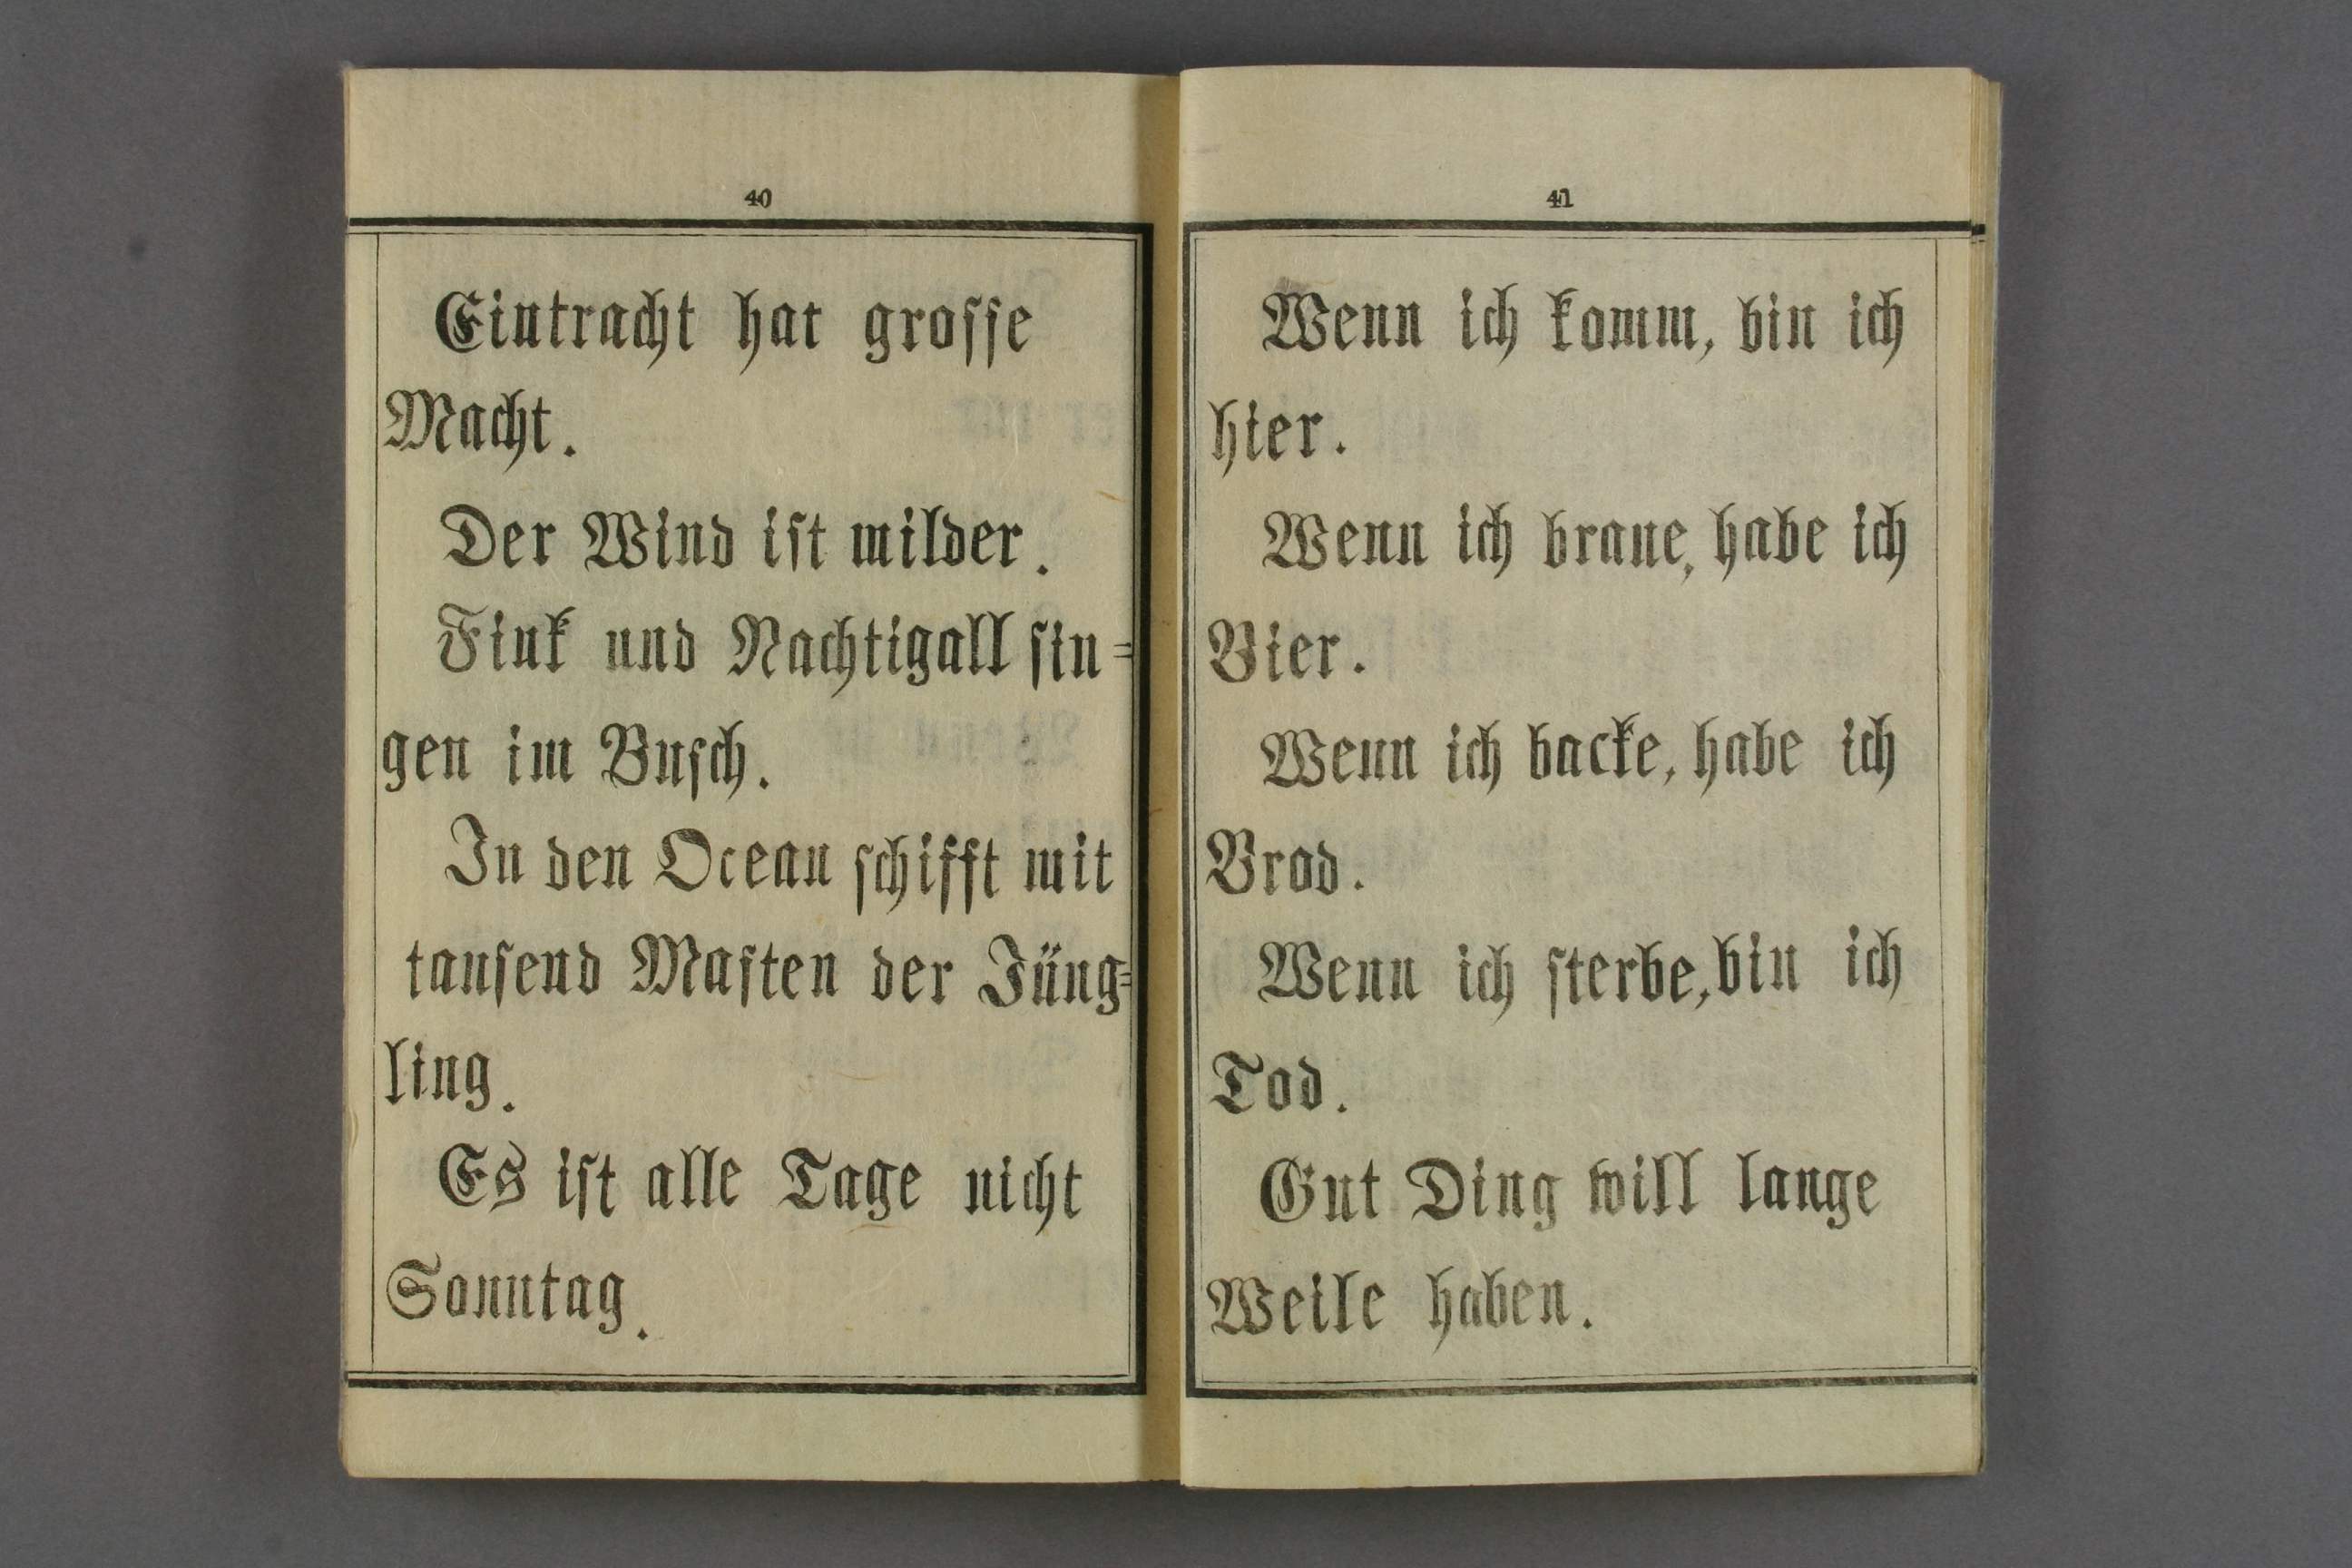 40
Eintracht hat grosse
Macht.
Der Wind ist milder.
Fink und Nachtigall sin=
gen im Busch.
In den Ocean schifft mit
tausend Masten der Jüng=
ling.
Es ist alle Tage nicht
Sonntag.
41
Wenn ich komm, bin ich
hier.
Wenn ich braue, habe ich
Bier.
Wenn ich backe, habe ich
Brod.
Wenn ich sterbe, bin ich
Tod.
Gut Ding will lange
Weile haben.